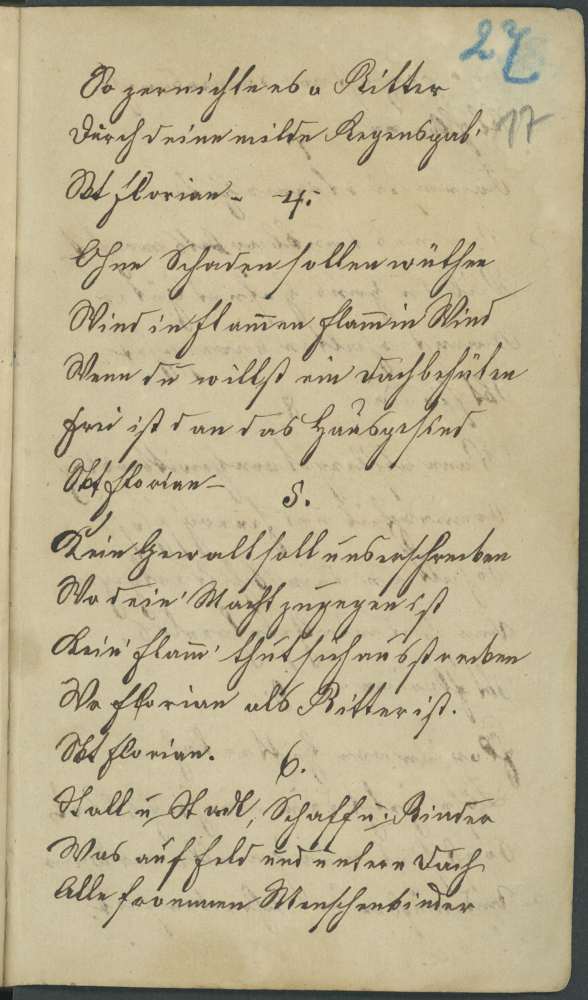 27
17
So zernichte es o Ritter
Durch deine milde Regensgab'
Skt Florian - 4.
Ohne Schaden sollen wüthen
Wind in Flamen Flam in Wind
Wenn du willst ein Dach behüten
Frei ist dan das Haus
Skt Florian -
5.
Kein Gewalt soll uns erschrecken
Wo dein' Macht zugegen ist
Kein' Flam' thut sich ausstrecken
Wo Florian als Ritter ist.
Skt Florian.
6.
Stall u Stadl, Schaff u: Rinder
Was auf Feld und untern Dach
Alle frommen Menschenkinder